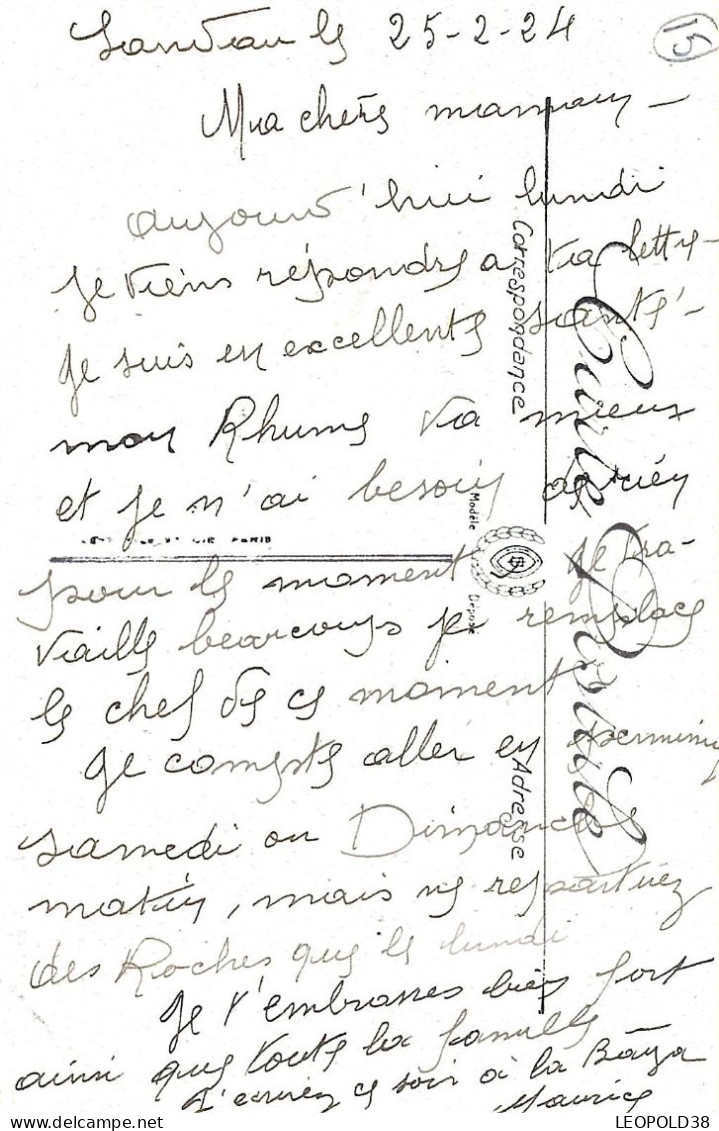 Landau le 25-2-24
15
Ma chère maman -
aujourd'hui lundi
je viens répondre a ta lettre -
Je suis en excellente santé -
mon Rhume va mieux
et je n'ai besoin de rien
pour le moment, je tra-
vaille beaucoup je remplace
le chef de ce moment
Je compte aller en permission
samedi ou Dimanche
matin, mais ne repartirez
des Roches que le lundi
Je t'embrasse bien fort
ainsi que toute la famille
J'écrirez ce soir à la
Maurice
Carte Postale
Correspondance
Adresse
Modèle Déposé
PARIS
LEOPOLD38